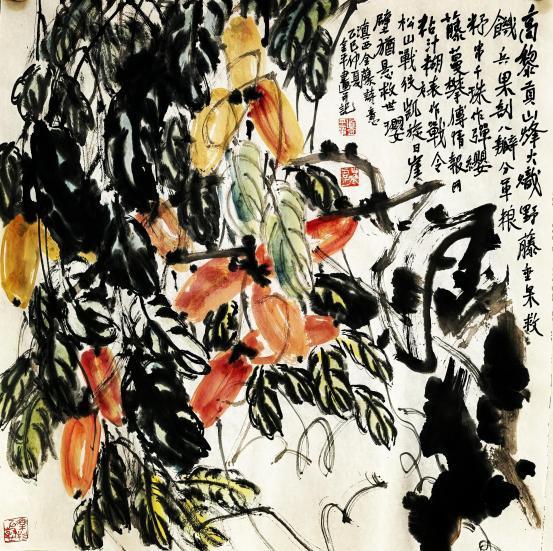 高黎貢山烽火熾野藤垂果救
餓兵果剖八瓣分軍粮
籽串千珠作彈纓
藤蔓攀傳情報网
粘汁糊裱作戰令
松山戰役凱旋日崖
壁猶悬救世瓔
滇西金藤詩意
乙巳仲夏